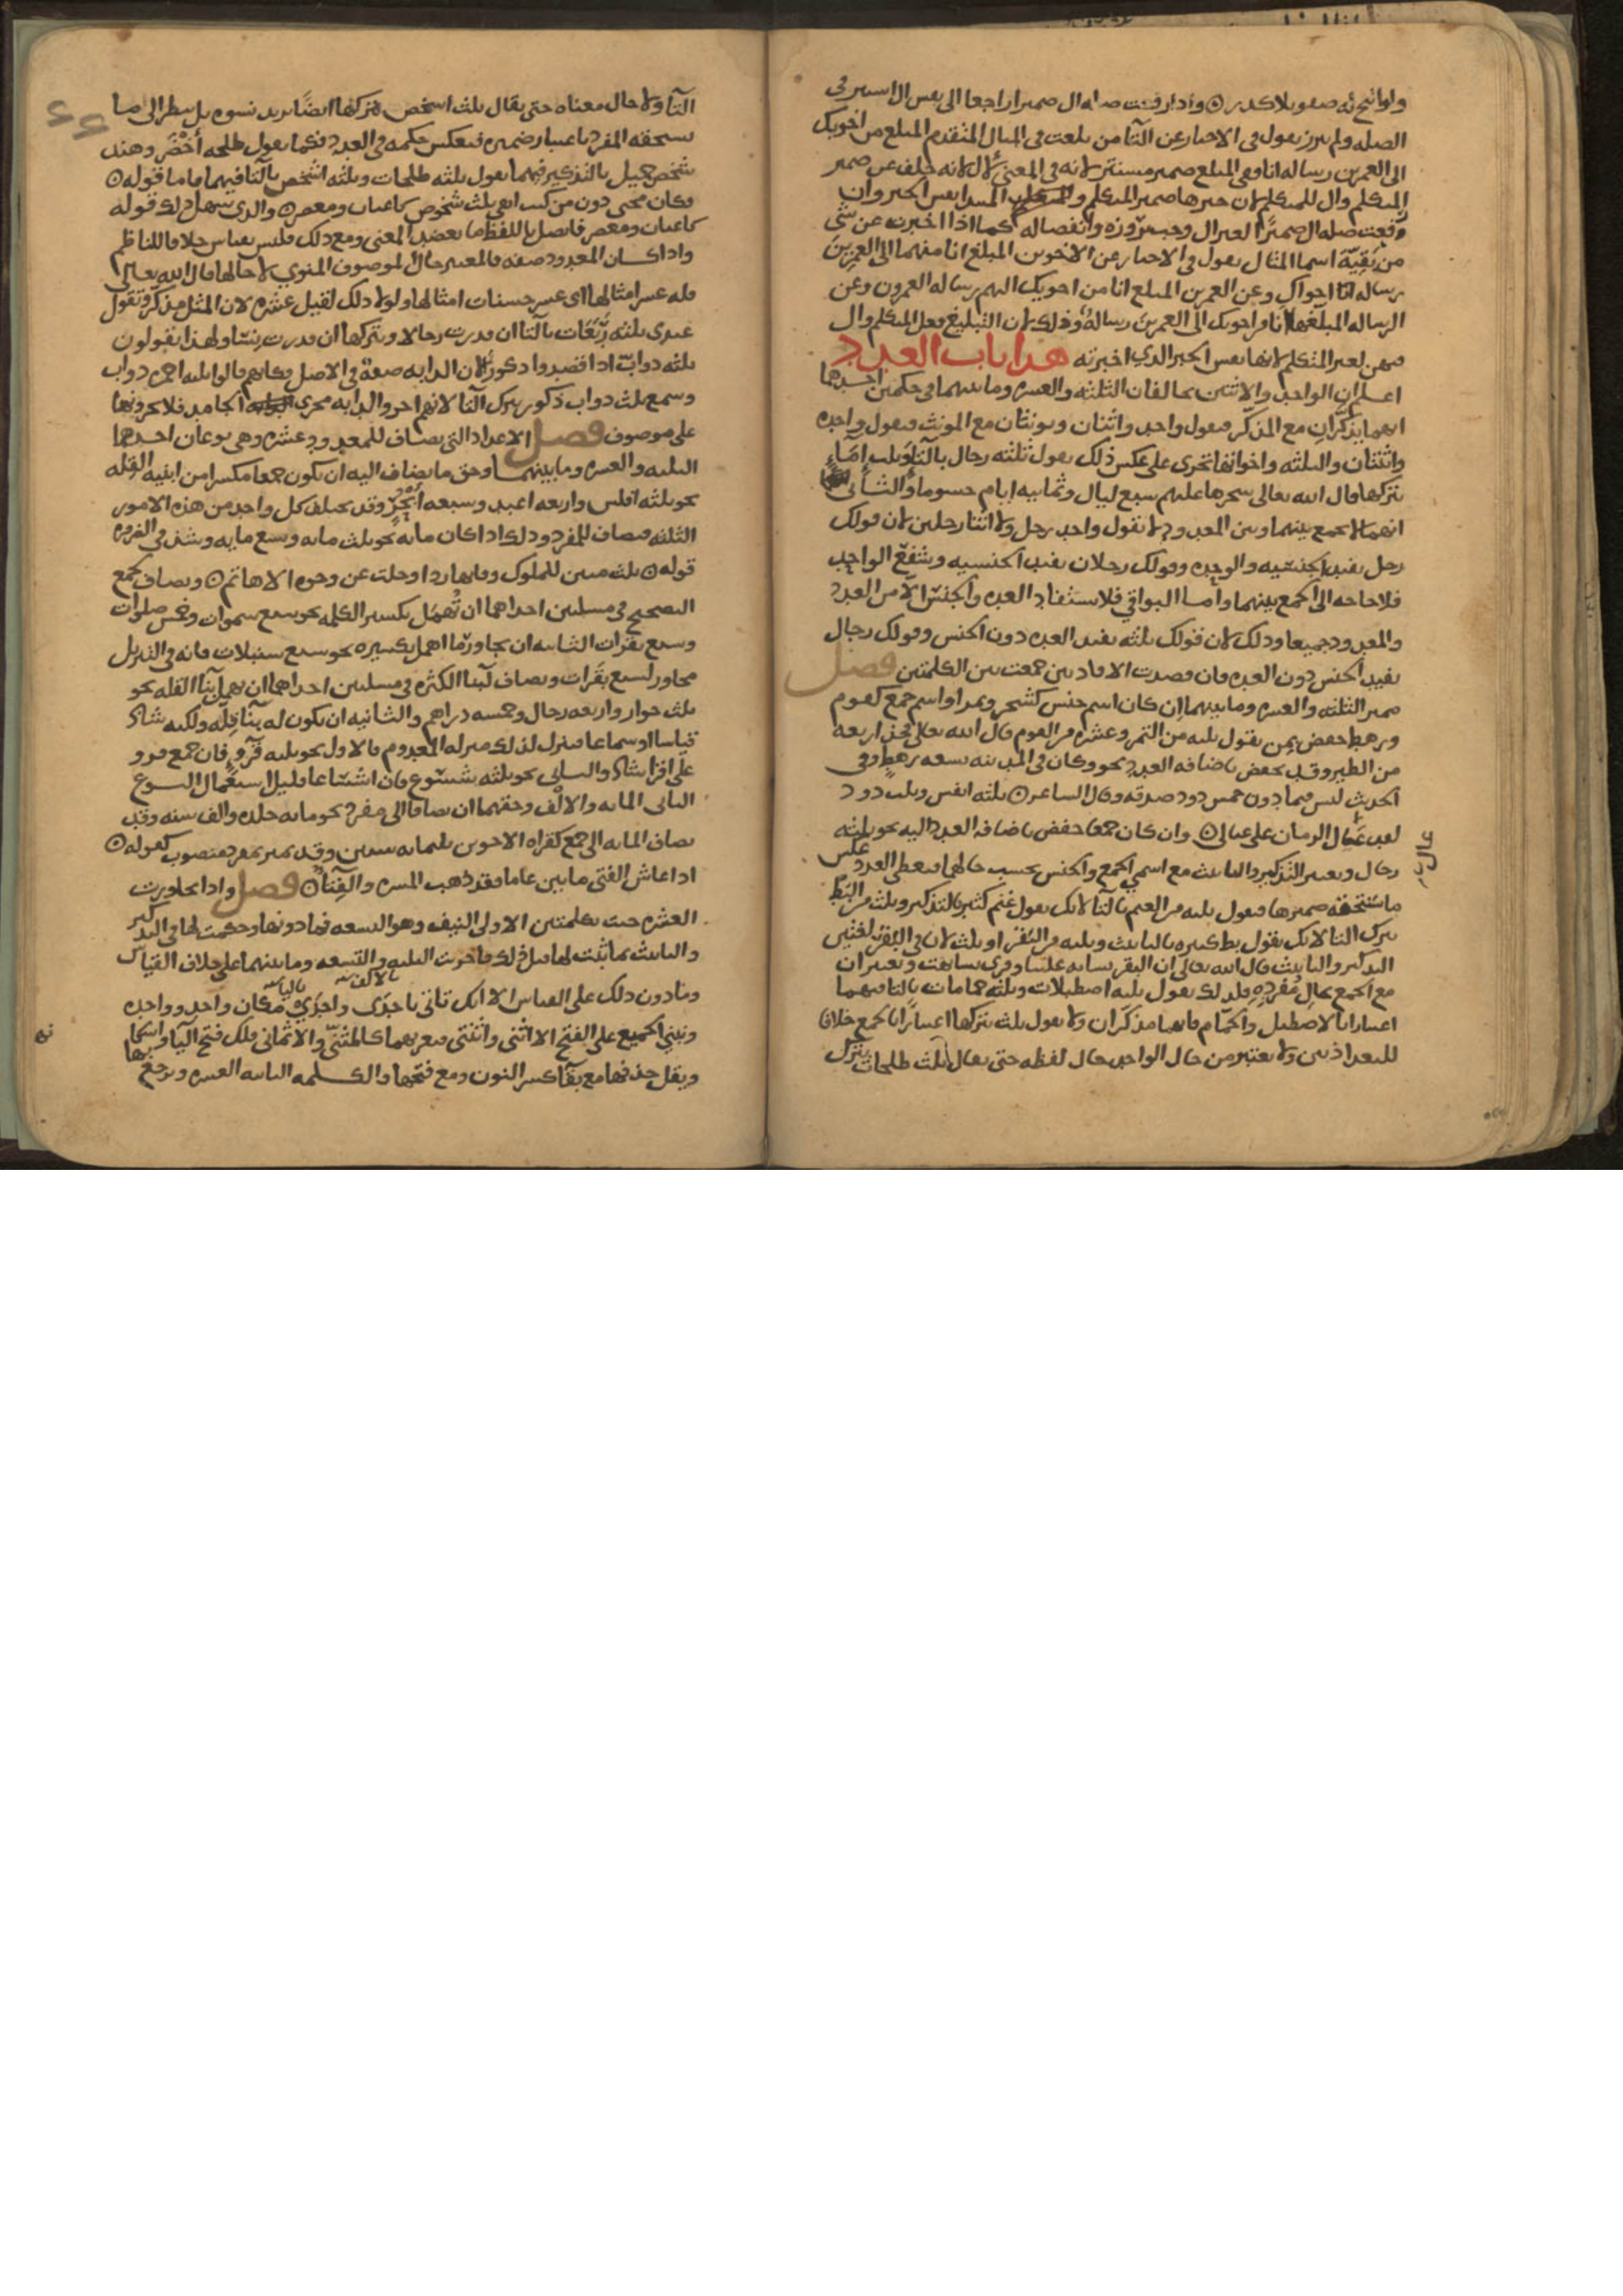 ولو اتيح له صفو بلا كدر ۞ واذا رفعت صله ال ضميرا راجعا الى نفس ال استتر في
الصله ولم يبرز تقول في الاخبار عن التا من بلغت في المثال المتقدم المبلغ من اخويك
الى العمرين رساله انا ففي المبلغ ضمير مستتر لانه في المعنى لال لانه خلف عن ضمير
المتكلم وال للمتكلم لان خبرها ضمير المتكلم والمبتدا نفس الخبر وان
رفعت صله ال ضميرا لغير ال وجب بروزه وانفصاله كما اذا اخبرت عن شي
من بقيه اسما المثال تقول في الاخبار عن الاخوين المبلغ انا منهما الى العمرين
رساله اخواك وعن العمرين المبلغ انا من اخويك اليهم رساله العمرون وعن
الرساله المبلغها انا من اخويك الى العمرين رساله وذلك لان التبليغ فعل المتكلم وال
فيهن لغير المتكلم لانها نفس الخبر الذي اخبرته هذا باب العدد
اعلم ان الواحد والاثنين يخالفان الثلثه والعشره وما بينهما في حكمين احدهما
انهما يذكران مع المذكر فتقول واحد واثنان ويونثان مع المونث فتقول واحده
واثنتان والثلثه واخواتها تجري على عكس ذلك تقول ثلثه رجال بالتا وثلث اماء
بتركها قال الله تعالى سخرها عليهم سبع ليال وثمانيه ايام حسوما والثاني
انهما لا يجمع بينهما وبين المعدود لا تقول واحد رجل ولا اثنا رجلين لان قولك
رجل يفيد الجنسيه والوحده وقولك رجلان يفيد الجنسيه وشفع الواحد
فلا حاجه الى الجمع بينهما واما البواقي فلا تستفاد العده والجنس الا من العدد
والمعدود جميعا وذلك لان قولك ثلثه يفيد العده دون الجنس وقولك رجال
يفيد الجنس دون العده فان قصدت الافادتين جمعت بين الكلمتين فصل
مميز الثلثه والعشره وما بينهما ان كان اسم جنس كشجر وتمر او اسم جمع كقوم
ورهط خفض بمن تقول ثلثه من التمر وعشره من القوم قال الله تعالى فخذ اربعه
من الطير وقد يخفض باضافه العدد نحو وكان في المدينه تسعه رهط وفي
الحديث ليس فيما دون خمس ذود صدقه وقال الشاعر ۞ ثلثه انفس وثلث ذود
لقد عال الزمان على عيالي ۞ وان كان جمعا خفض باضافه العدد اليه نحو ثلثه
عال
رجال ويعتبر التذكير والتانيث مع اسمي الجمع والجنس بحسب حالهما فيعطى العدد عكس
ما يستحقه ضميرها فتقول ثلثه من الغنم بالتا لانك تقول غنم كثير بالتذكير وثلث من البط
بترك التا لانك تقول بط كثيره بالتانيث وثلثه من البقر او ثلث لان في البقر لغتين
التذكير والتانيث قال الله تعالى ان البقر تشابه علينا وقري تشابهت ويعتبران
مع الجمع بحال مفرده فلذلك تقول ثلثه اصطبلات وثلثه حمامات بالتا فيهما
اعتبارا بالاصطبل والحمام فانهما مذكران ولا تقول ثلث بتركها اعتبارا بالجمع خلافا
للبغداذيين ولا يعتبر من حال الواحد حال لفظه حتى يقال ثلث طلحات بترك
التا ولا حال معناه حتى يقال ثلث اشخص بتركها ايضا يريد نسوه بل ينظر الى ما
يستحقه المفرد باعتبار ضميره فيعكس حكمه في العدد فكما تقول طلحه احضر وهند
شخص جميل بالتذكير فيهما تقول ثلثه طلحات وثلثه اشخص بالتا فيهما فاما قوله ۞
فكان مجني دون من كنت اتقي ثلث شخوص كاعبان ومعصر ۞ والذي سهل ذلك قوله
كاعبان ومعصر فاتصل باللفظ ما يعضد المعنى ومع ذلك فليس بقياس خلافا للناظم
واذا كان المعدود صفه فالمعتبر حال الموصوف المنوي لا حالها قال الله تعالى
فله عشر امثالها اي عشر حسنات امثالها ولولا ذلك لقيل عشره لان المثل مذكر وتقول
عندي ثلثه ربعات بالتا ان قدرت رجالا وبتركها ان قدرت نسا ولهذا يقولون
ثلثه دواب اذا قصدوا ذكورا لان الدابه صفه في الاصل فكانهم قالوا ثلثه احمره دواب
وسمع ثلث دواب ذكور بترك التا لانهم اجروا الدابه مجرى الجامد فلا يجرونها
على موصوف فصل الاعداد التي تضاف للمعدود عشره وهي نوعان احدهما
الثلثه والعشره وما بينهما وحق ما يضاف اليه ان يكون جمعا مكسرا من ابنيه القله
نحو ثلثه افلس واربعه اعبد وسبعه ابحر وقد يتخلف كل واحد من هذه الامور
الثلثه فيضاف للمفرد وذلك اذا كان مايه نحو ثلث مايه وتسع مايه وشذ في الضروره
قوله ۞ ثلث مئين للملوك وفى بها ردائي وجلت عن وجوه الاهاتم ۞ ويضاف لجمع
التصحيح في مسلتين احداهما ان يهمل تكسير الكلمه نحو سبع سموات وخمس صلوات
وسبع بقرات الثانيه ان يجاور ما اهمل تكسيره نحو سبع سنبلات فانه في التنزيل
مجاور لسبع بقرات ويضاف لبنا الكثره في مسلتين احداهما ان يهمل بنا القله نحو
ثلث جوار واربعه رجال وخمسه دراهم والثانيه ان يكون له بنا قله ولكنه شاذ
قياسا او سماعا فينزل لذلك منزله المعدوم فالاول نحو ثلثه قروء فان جمع قرو
على اقرا شاذ والثاني نحو ثلثه شسوع فان اشساعا قليل الاستعمال النوع
الثاني المايه والالف وحقهما ان يضافا الى مفرد نحو مايه جلده والف سنه وقد
تضاف المايه الى جمع كقراه الاخوين ثلثمايه سنين وقد تميز بمفرد منصوب كقوله ۞
اذا عاش الفتى مايتين عاما فقد ذهب المسره والفتاء ۞ فصل واذا تجاوزت
العشره جيت بكلمتين الاولى النيف وهو التسعه فما دونها وحكمت لها في التذكير
والتانيث بما ثبت لها قبل ذلك فاجريت الثلثه والتسعه وما بينهما على خلاف القياس
وما دون ذلك على القياس الا انك تاتي باحدى واحدي مكان واحد وواحده
وتبني الجميع على الفتح الا اثني واثنتي فتعربهما كالمثنى والا ثماني فلك فتح اليا واسكانها
ويقل حذفها مع بقا كسر النون ومع فتحها والكلمه الثانيه العشره وترجع بها